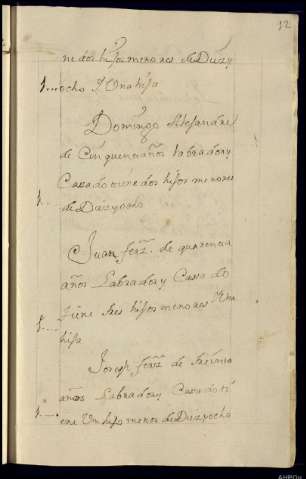 12
ne dos hijos menores de Diez y
1.... ocho Y Una hija
Domingo Alejandre
de Cinquenta años Labrador y
Casado tiene dos hijos menores
1.. de Diez y ocho
Juan ferz. de quarenta
años Labrador y Casado
tiene tres hijos menores Y Una
1.... hija
Joseph ferz. de treinta
años Labrador y Casado ti
1.... ene Un hijo menor de Diez y ocho
AHPOU